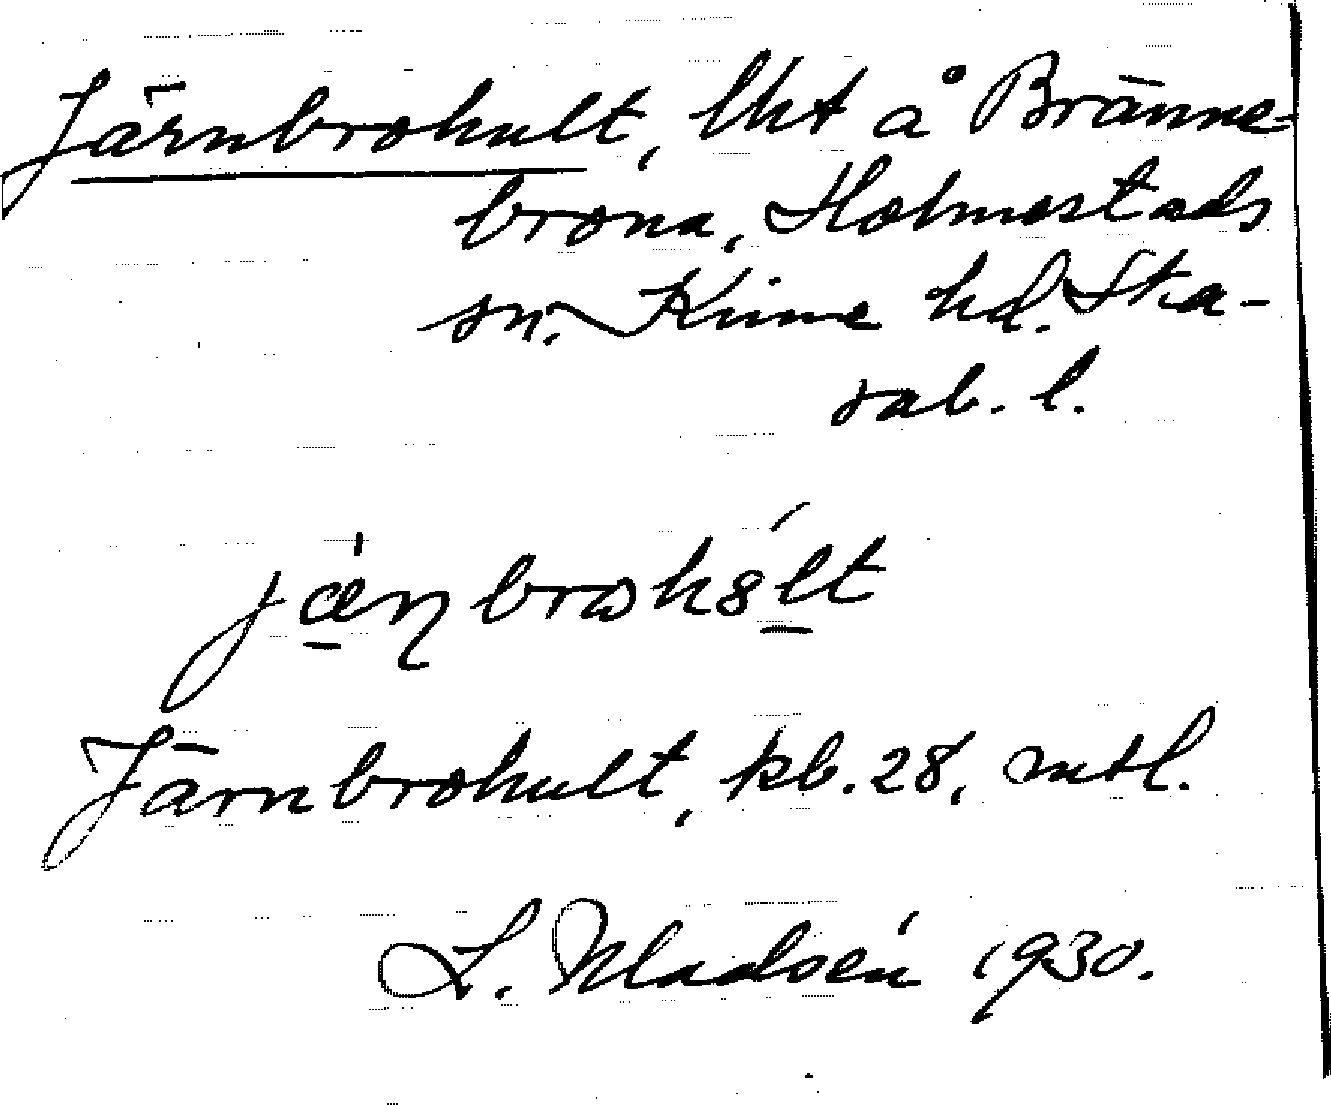 Järnbrohult, lht å Bränne-
brona, Holmestads
sn. Kinne hd. Ska-
rab. l.
jæṇbrωk8lt
Järnbrohult, kb. 28, mtl.
L. Madsén 1930.